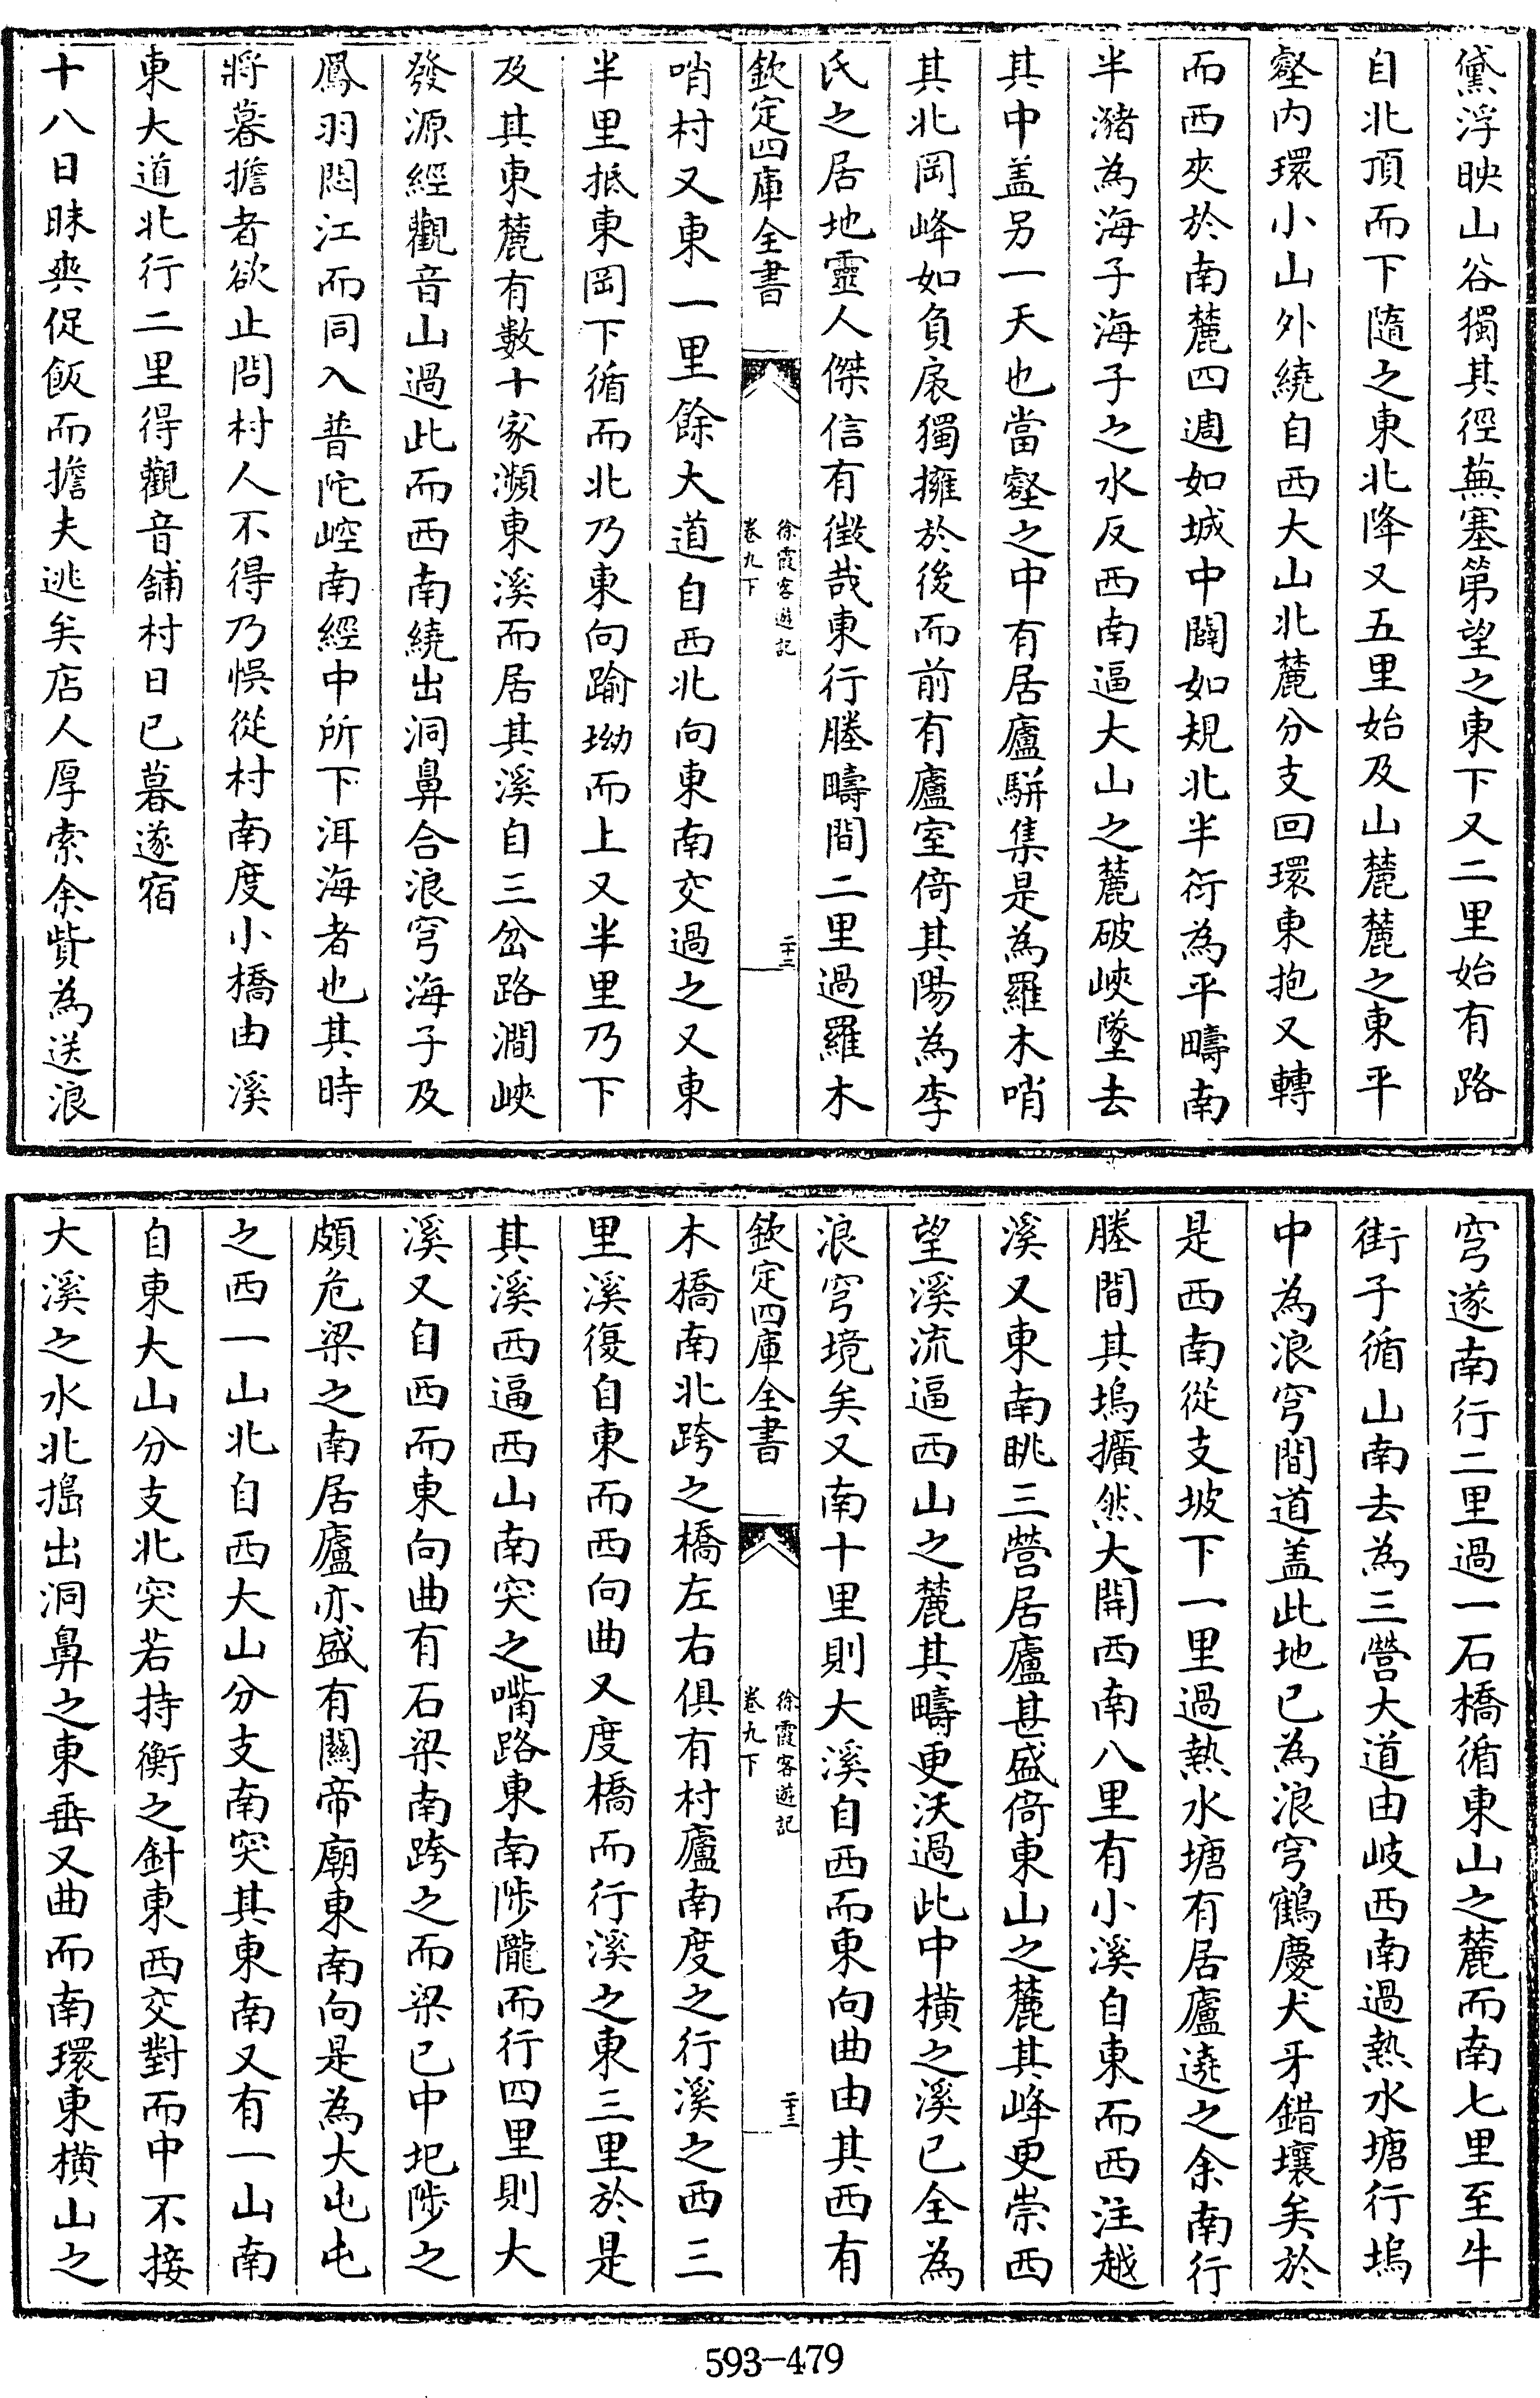 黛浮映山谷獨其徑蕪塞第望之東下又二里始有路
自北頂而下隨之東北降又五里始及山麓麓之東平
壑内環小山外繞自西大山北麓分支回環東抱又轉
而西夾於南麓四週如城中闢如規北半衍為平疇南
半瀦為海子海子之水反西南逼大山之麓破峽墜去
其中盖另一天也當壑之中有居廬駢集是為羅木哨
其北岡峰如負扆獨擁於後而前有廬室倚其陽為李
氏之居地靈人傑信有徵哉東行塍疇間二里過羅木
欽定四庫全書
徐霞客遊記
卷九下
二十二
哨村又東一里餘大道自西北向東南交過之又東
半里抵東岡下循而北乃東向踰坳而上又半里乃下
及其東麓有數十家瀕東溪而居其溪自三岔路澗峽
發源經觀音山過此而西南繞出洞鼻合浪穹海子及
鳳羽悶江而同入普陀崆南經中所下洱海者也其時
將暮擔者欲止問村人不得乃悞從村南度小橋由溪
東大道北行二里得觀音舖村日已暮遂宿
十八日昧爽促飯而擔夫逃矣店人厚索余貲為送浪
穹遂南行二里過一石橋循東山之麓而南七里至牛
街子循山南去為三營大道由岐西南過熱水塘行塢
中為浪穹間道盖此地已為浪穹鶴慶犬牙錯壤矣於
是西南從支坡下一里過熱水塘有居廬遶之余南行
塍間其塢擴然大開西南八里有小溪自東而西注越
溪又東南眺三營居廬甚盛倚東山之麓其峰更崇西
望溪流逼西山之麓其疇更沃過此中橫之溪已全為
浪穹境矣又南十里則大溪自西而東向曲由其西有
欽定四庫全書
徐霞客遊記
卷九下
二十三
木橋南北跨之橋左右俱有村廬南度之行溪之西三
里溪復自東而西向曲又度橋而行溪之東三里於是
其溪西逼西山南突之嘴路東南陟隴而行四里則大
溪又自西而東向曲有石梁南跨之而梁已中圯陟之
頗危梁之南居廬亦盛有關帝廟東南向是為大屯屯
之西一山北自西大山分支南突其東南又有一山南
自東大山分支北突若持衡之針東西交對而中不接
大溪之水北搗出洞鼻之東垂又曲而南環東橫山之
593-479